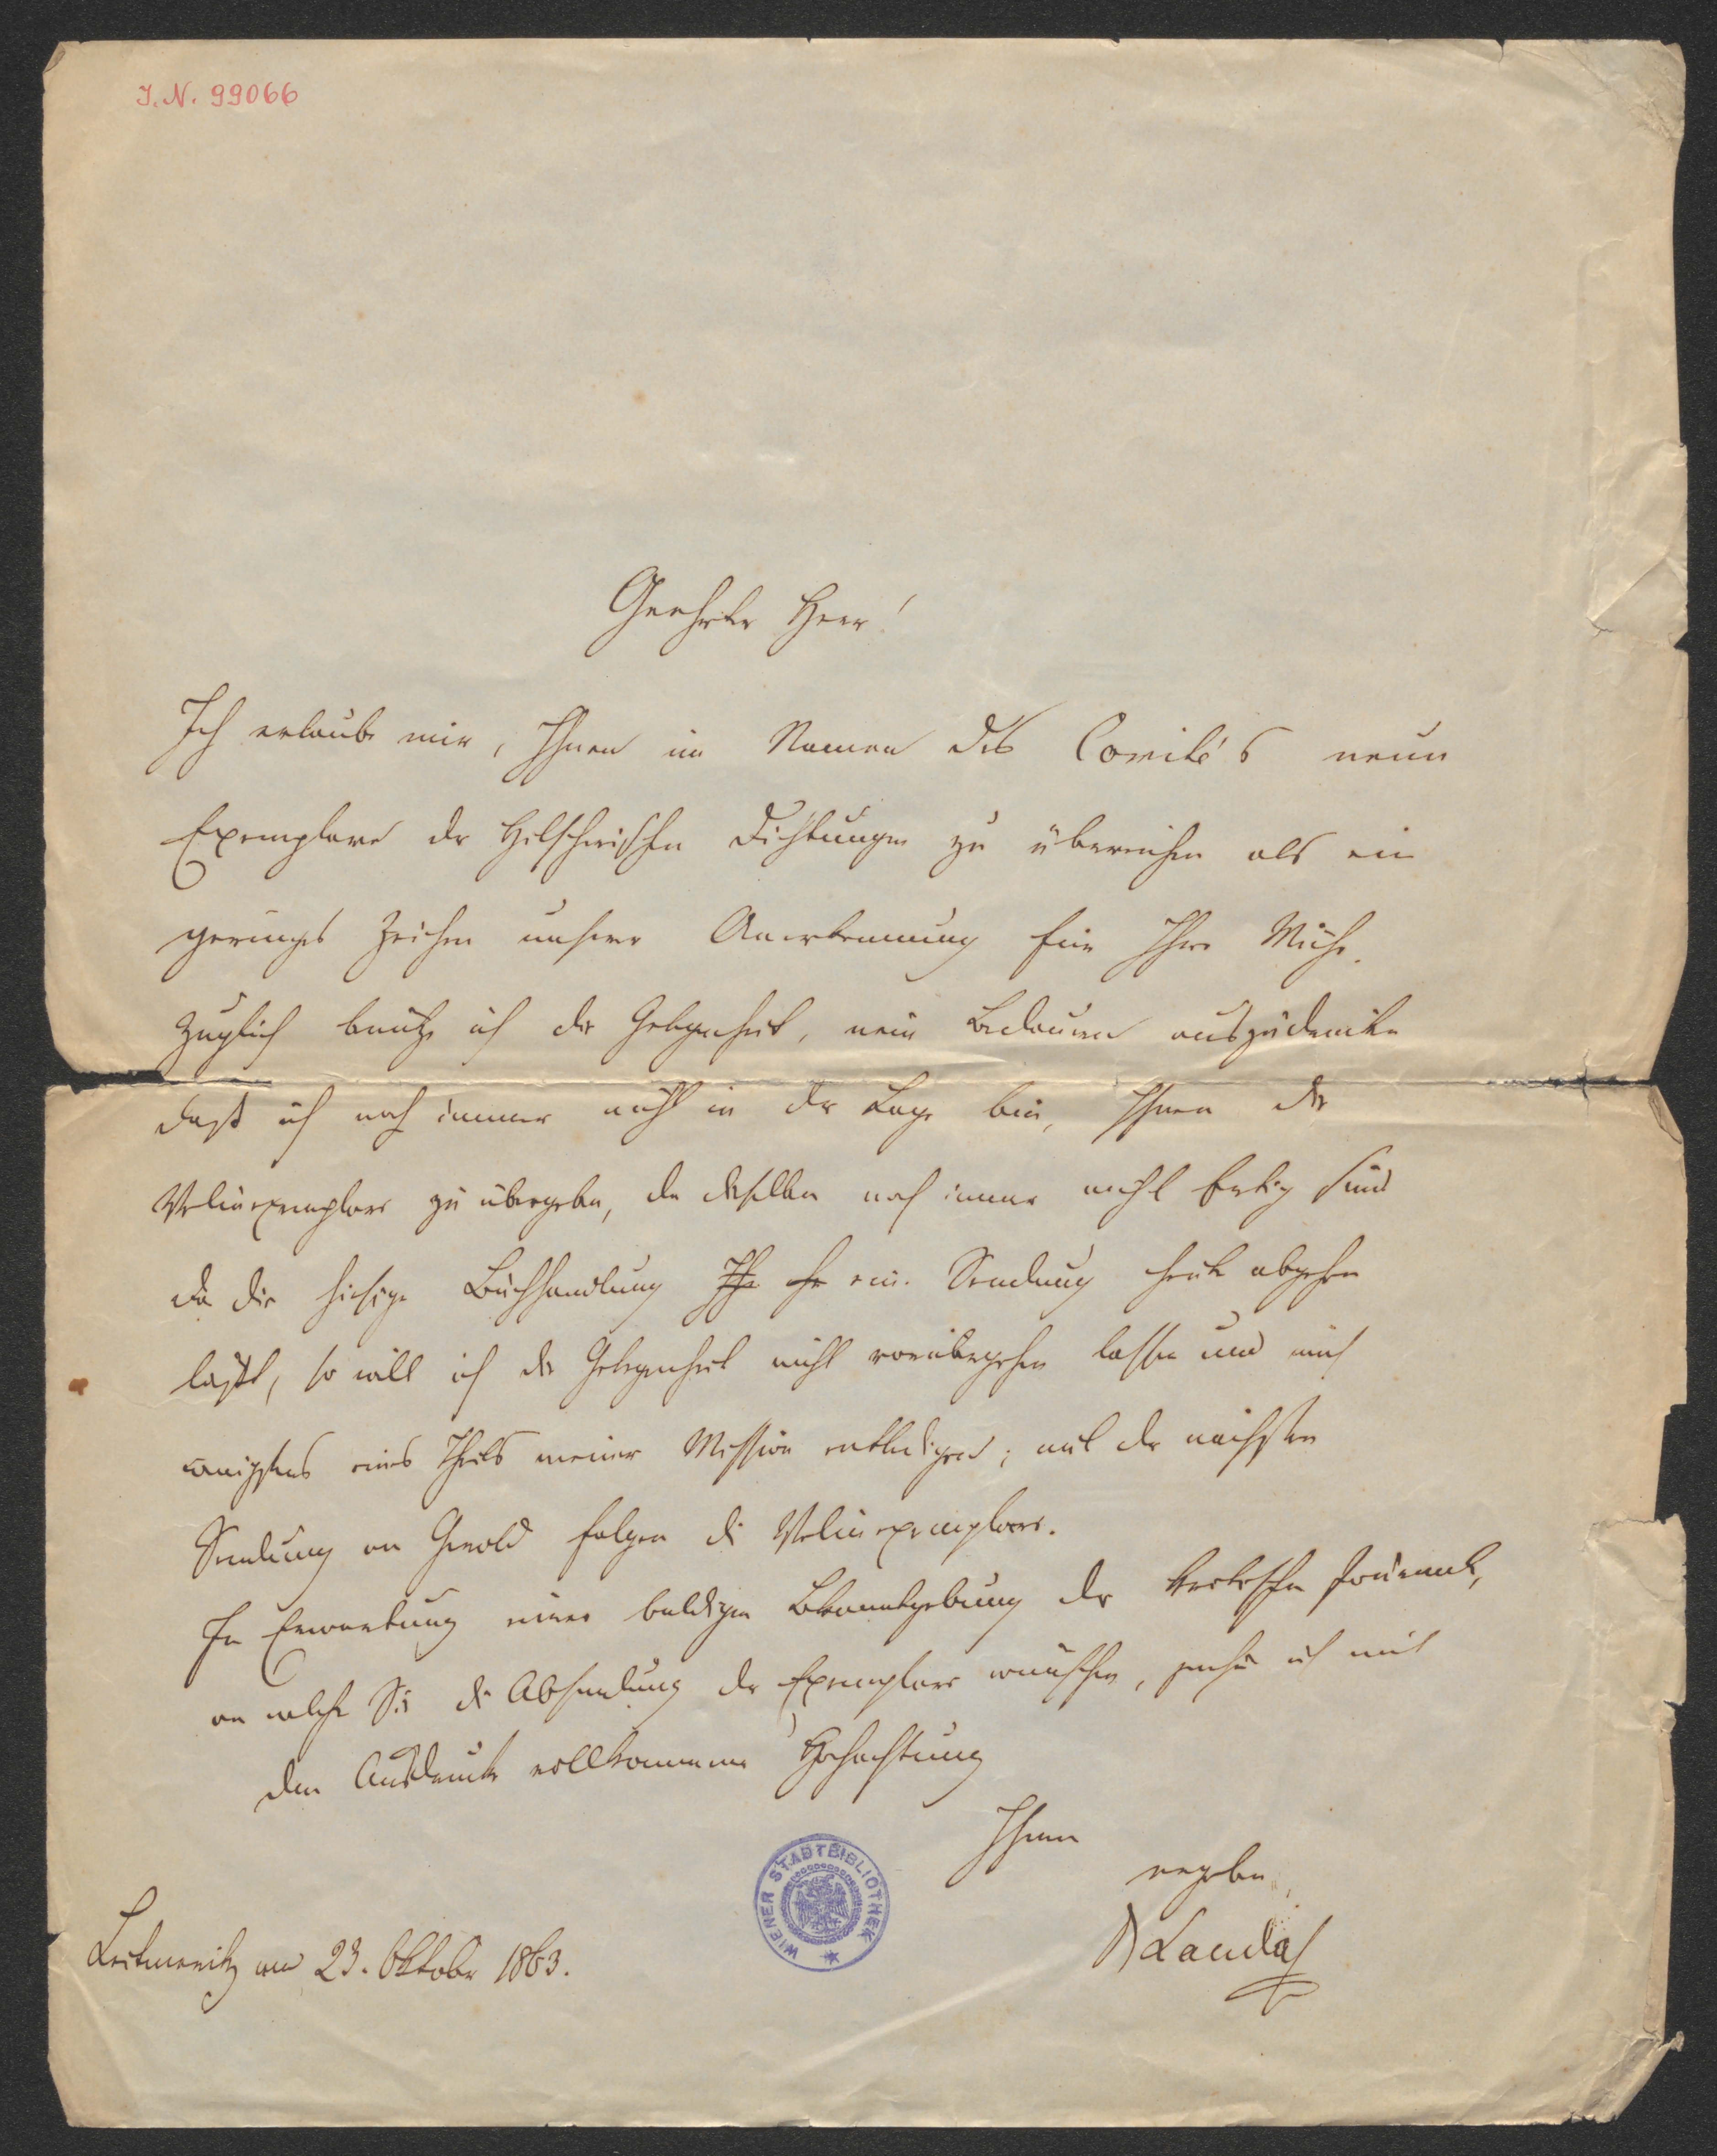 I. N. 99066
Geehrter Herr!
Ich erlaube mir, Ihnen im Namen des Comité's neun
Exemplare der Hilscherischen Dichtungen zu überreichen als ein
geringes Zeichen unserer Anerkennung für Ihre Mühe.
Zugleich benütze ich die Gelegenheit, mein Bedauern auszudrücken
daß ich noch immer nicht in der Lage bin, Ihnen die
Velinexemplare zu übergeben, da dieselben noch immer nicht fertig sind
da die hiesige Buchhandlung eine Sendung heute abgehen
läßt, so will ich die Gelegenheit nicht vorübergehen lassen und mich
wenigstens eines Theils meiner Mission entledigen; mit der nächsten
Sendung an Gerold folgen die Velinexemplare.
In Erwartung einer baldigen Bekanntgebung der kritischen Journale,
an welche Sie die Absendung der Exemplare wünschen, zeichne ich mit
dem Ausdrucke vollkommener Hochachtung
Ihnen
ergeben
Landa
Leitmeritz am 23. Oktober 1863.
WIENER STADTBIBLIOTHEK